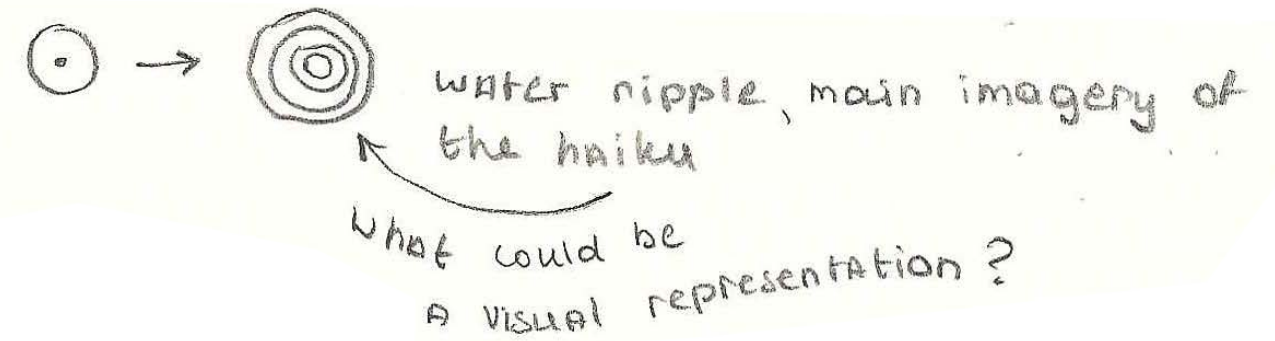 water nipple, main imagery of
the haiku
what could be
a visual representation?